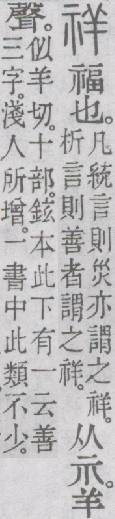 祥福也。凡統言則災亦謂之祥。
析言則善者謂之祥。
从示。羊
聲。似羊切。十部。鉉本此下有一云善
三字。淺人所增。一書中此類不少。